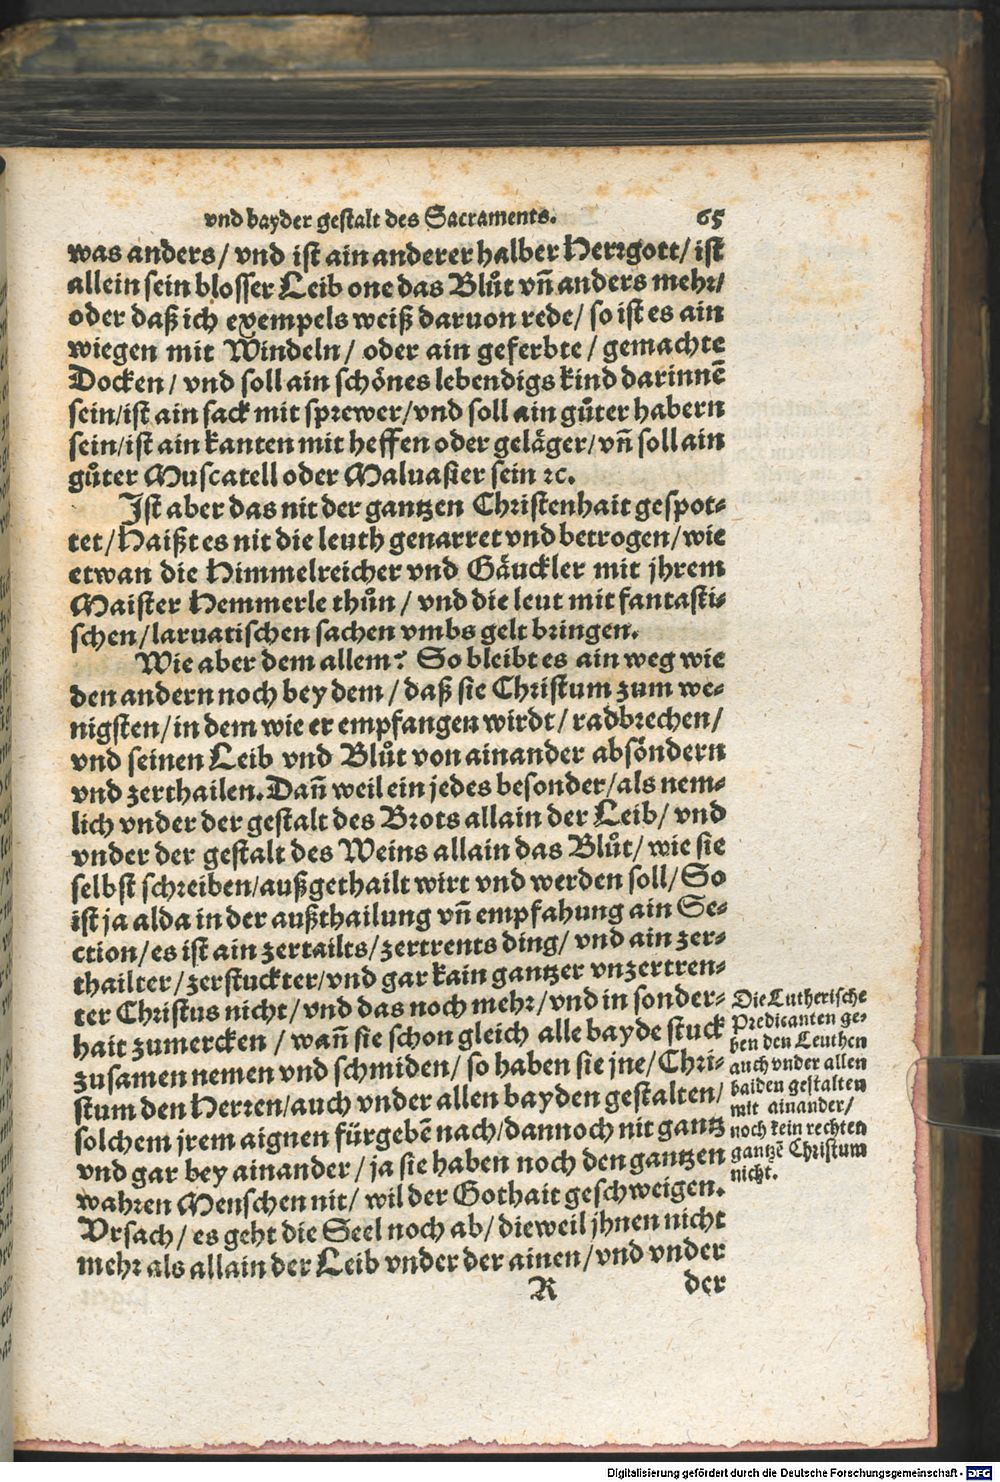 vnd bayder gestalt des Sacraments. 65
was anders/ vnd ist ain anderer halber Herꝛgott/ ist
allein sein blosser Leib one das Blůt vñ anders mehꝛ/
oder daß ich exempels weiß daruon rede/ so ist es ain
wiegen mit Windeln/ oder ain geferbte/ gemachte
Docken/ vnd soll ain schönes lebendigs kind darinnẽ
sein/ist ain sack mit spꝛewer/vnd soll ain gůter habern
sein/ist ain kanten mit heffen oder geläger/vñ soll ain
gůter Muscatell oder Maluasier sein ꝛc.
Ist aber das nit der gantzen Christenhait gespot⸗
tet/Haißt es nit die leuth genarret vnd betrogen/wie
etwan die Himmelreicher vnd Gäuckler mit jhrem
Maister Hemmerle thůn/ vnd die leut mit fantasti⸗
schen/laruatischen sachen vmbs gelt bꝛingen.
Wie aber dem allem? So bleibt es ain weg wie
den andern noch bey dem/ daß sie Chꝛistum zum we⸗
nigsten/in dem wie er empfangen wirdt/ radbꝛechen/
vnd seinen Leib vnd Blůt von ainander absöndern
vnd zerthailen. Dañ weil ein jedes besonder/als nem⸗
lich vnder der gestalt des Bꝛots allain der Leib/ vnd
vnder der gestalt des Weins allain das Blůt/ wie sie
selbst schꝛeiben/außgethailt wirt vnd werden soll/ So
ist ja alda in der außthailung vñ empfahung ain Se⸗
ction/es ist ain zertailts/zertrents ding/ vnd ain zer⸗
thailter/zerstuckter/vnd gar kain gantzer vnzertren⸗
ter Chꝛistus nicht/vnd das noch mehꝛ/vnd in sonder⸗
hait zumercken/ wañ sie schon gleich alle bayde stuck
zusamen nemen vnd schmiden/ so haben sie jne/Chꝛi⸗
stum den Herꝛen/auch vnder allen bayden gestalten/
solchem jrem aignen fürgebẽ nach/dannoch nit gantz
vnd gar bey ainander/ja sie haben noch den gantzen
wahꝛen Menschen nit/ wil der Gothait geschweigen.
Vrsach/ es geht die Seel noch ab/ dieweil jhnen nicht
mehꝛ als allain der Leib vnder der ainen/vnd vnder
R der
Die Lutherische
Pꝛedicanten ge⸗
ben den Leuthen
auch vnder allen
baiden gestalten
mit ainander/
noch kein rechten
gantzẽ Chꝛistum
nicht.
Digitalisierung gefördert durch die Deutsche Forschungsgemeinschaft - DFG